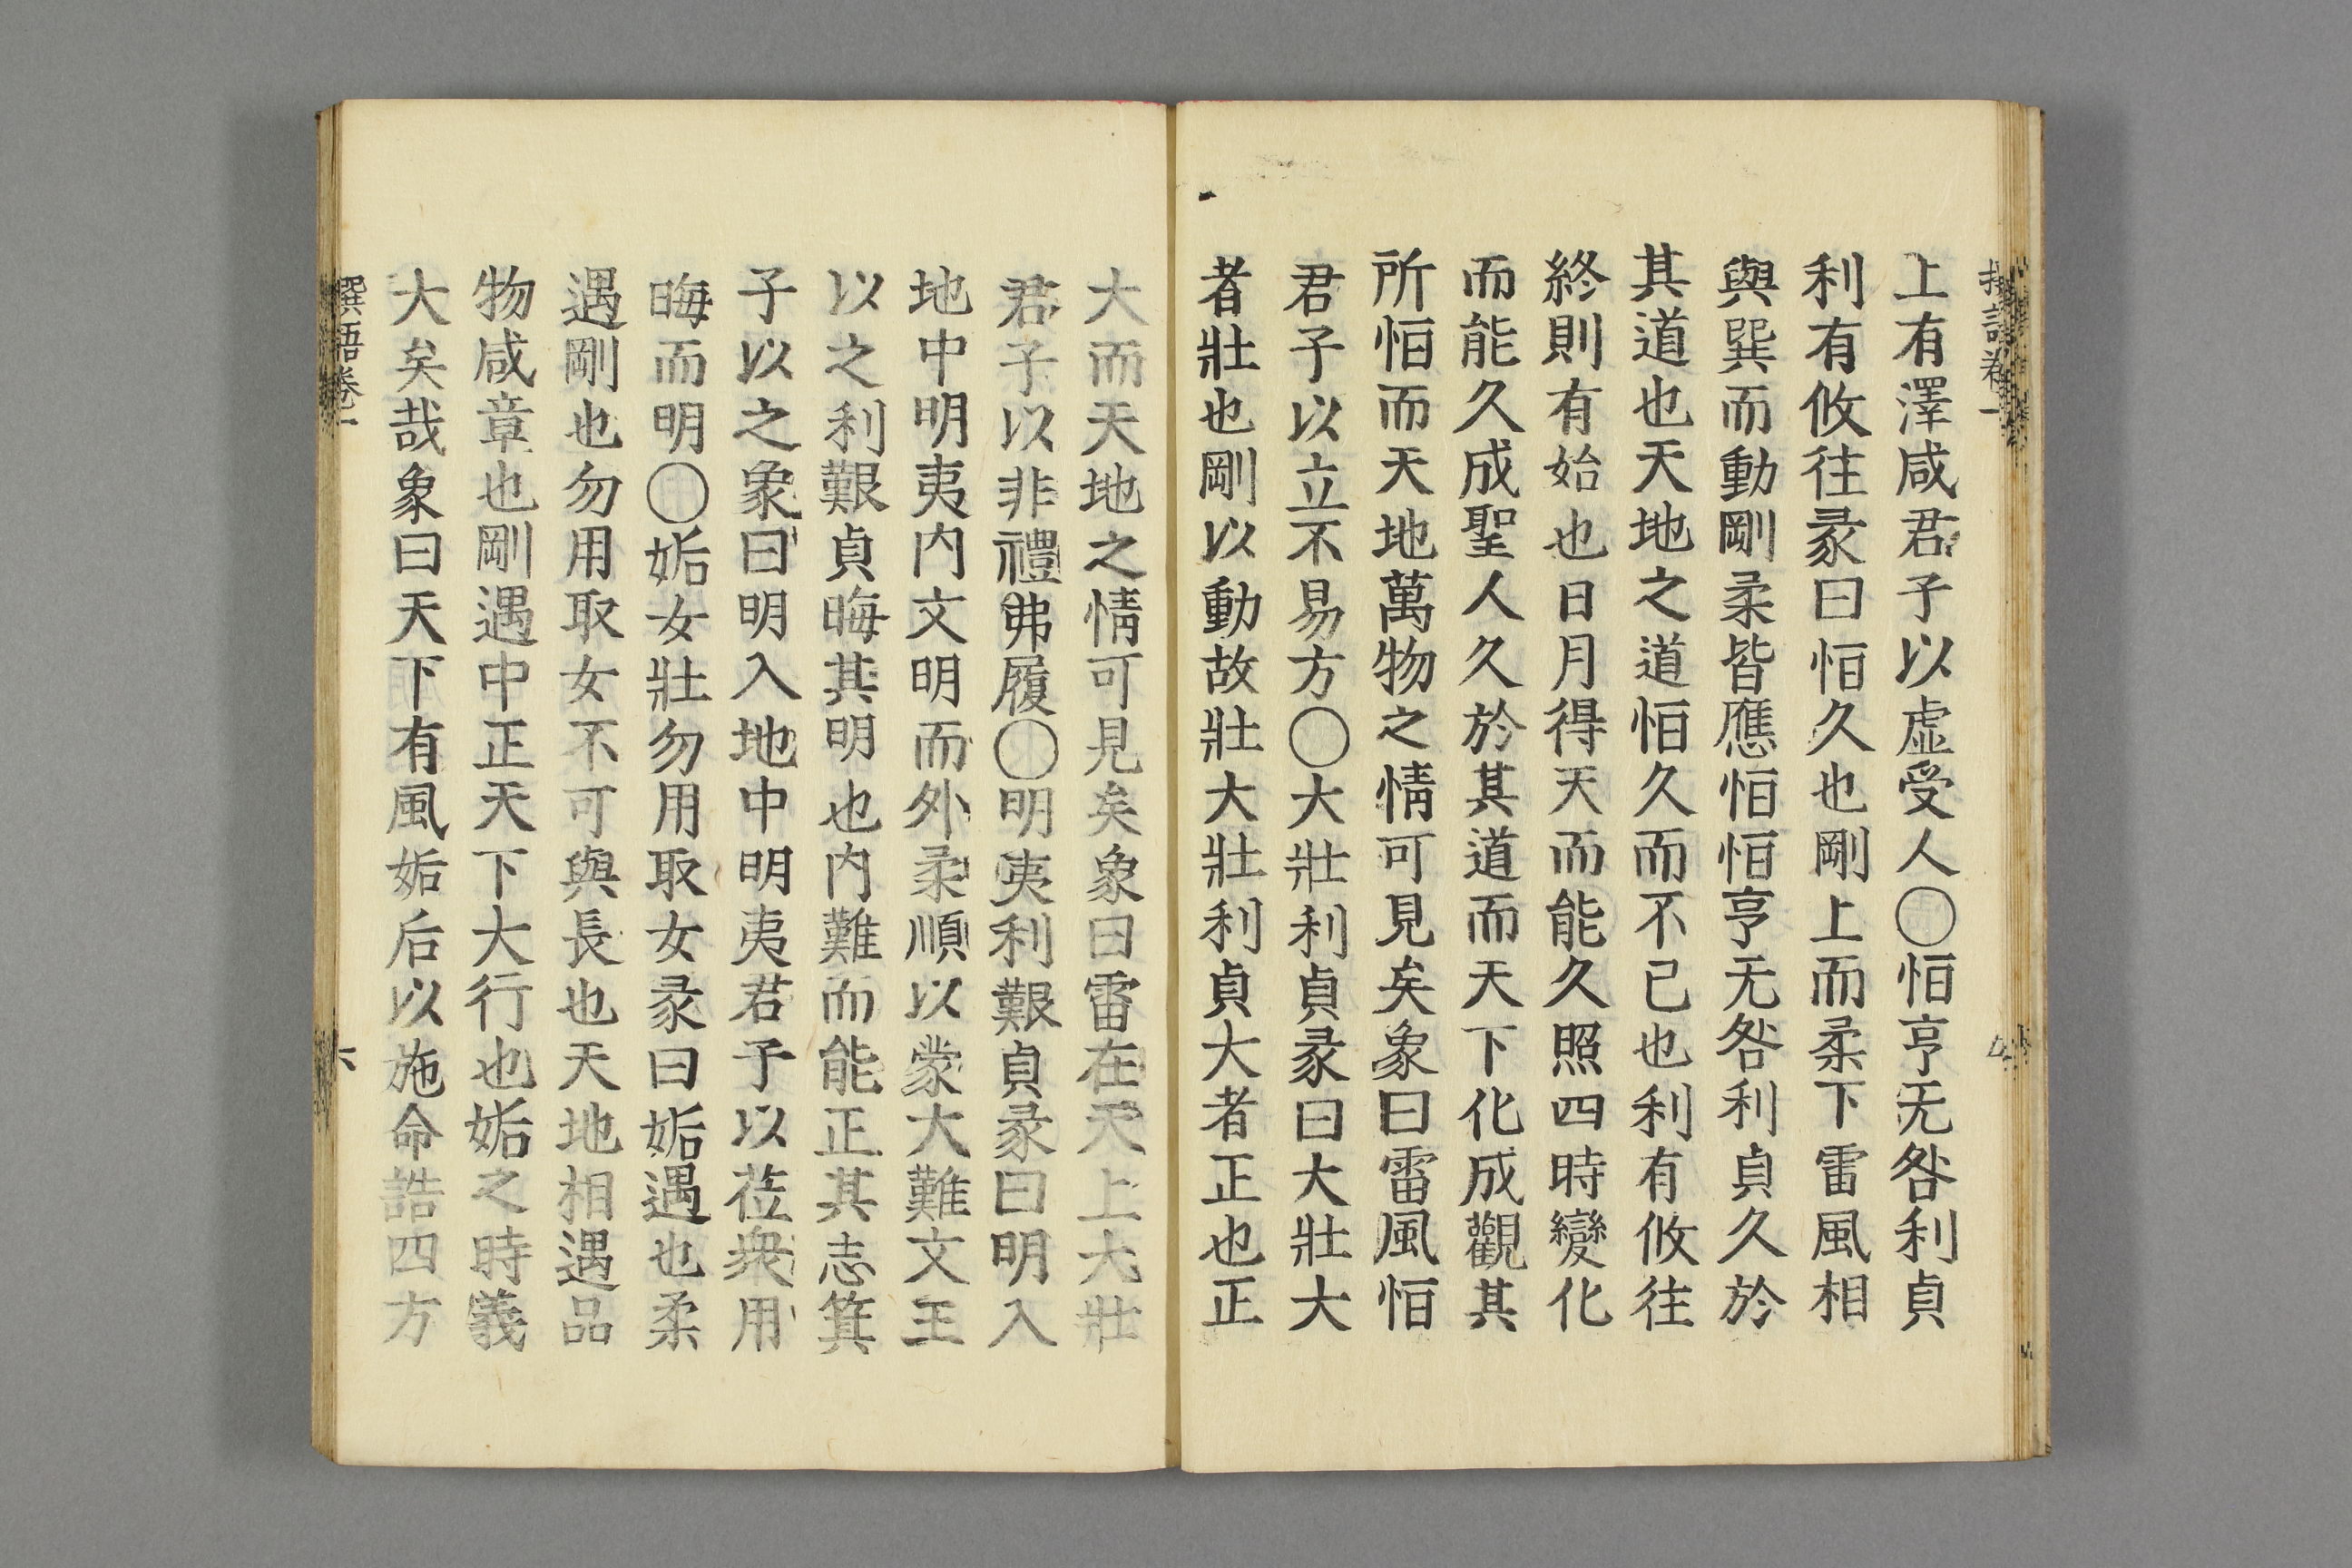 上有澤咸君子以虛受人〇恒亨无咎利貞
利有攸往彖曰恒久也剛上而柔下雷風相
與巽而動剛柔皆應恒恒亨无咎利貞久於
其道也天地之道恒久而不已也利有攸往
終則有始也日月得天而能久照四時變化
而能久成聖人久於其道而天下化成觀其
所恒而天地萬物之情可見矣象曰雷風恒
君子以立不易方〇大壯利貞彖曰大壯大
者壯也剛以動故壯大壯利貞大者正也正
大而天地之情可見矣象曰雷在天上大壯
君子以非禮弗履〇明夷利艱貞彖曰明入
地中明夷內文明而外柔順以蒙大難文王
以之利艱貞晦其明也內難而能正其志箕
子以之象曰明入地中明夷君子以莅衆用
晦而明〇姤女壯勿用取女彖曰姤遇也柔
遇剛也勿用取女不可與長也天地相遇品
物咸章也剛遇中正天下大行也姤之時義
大矣哉象曰天下有風姤后以施命誥四方
撰語卷一
六